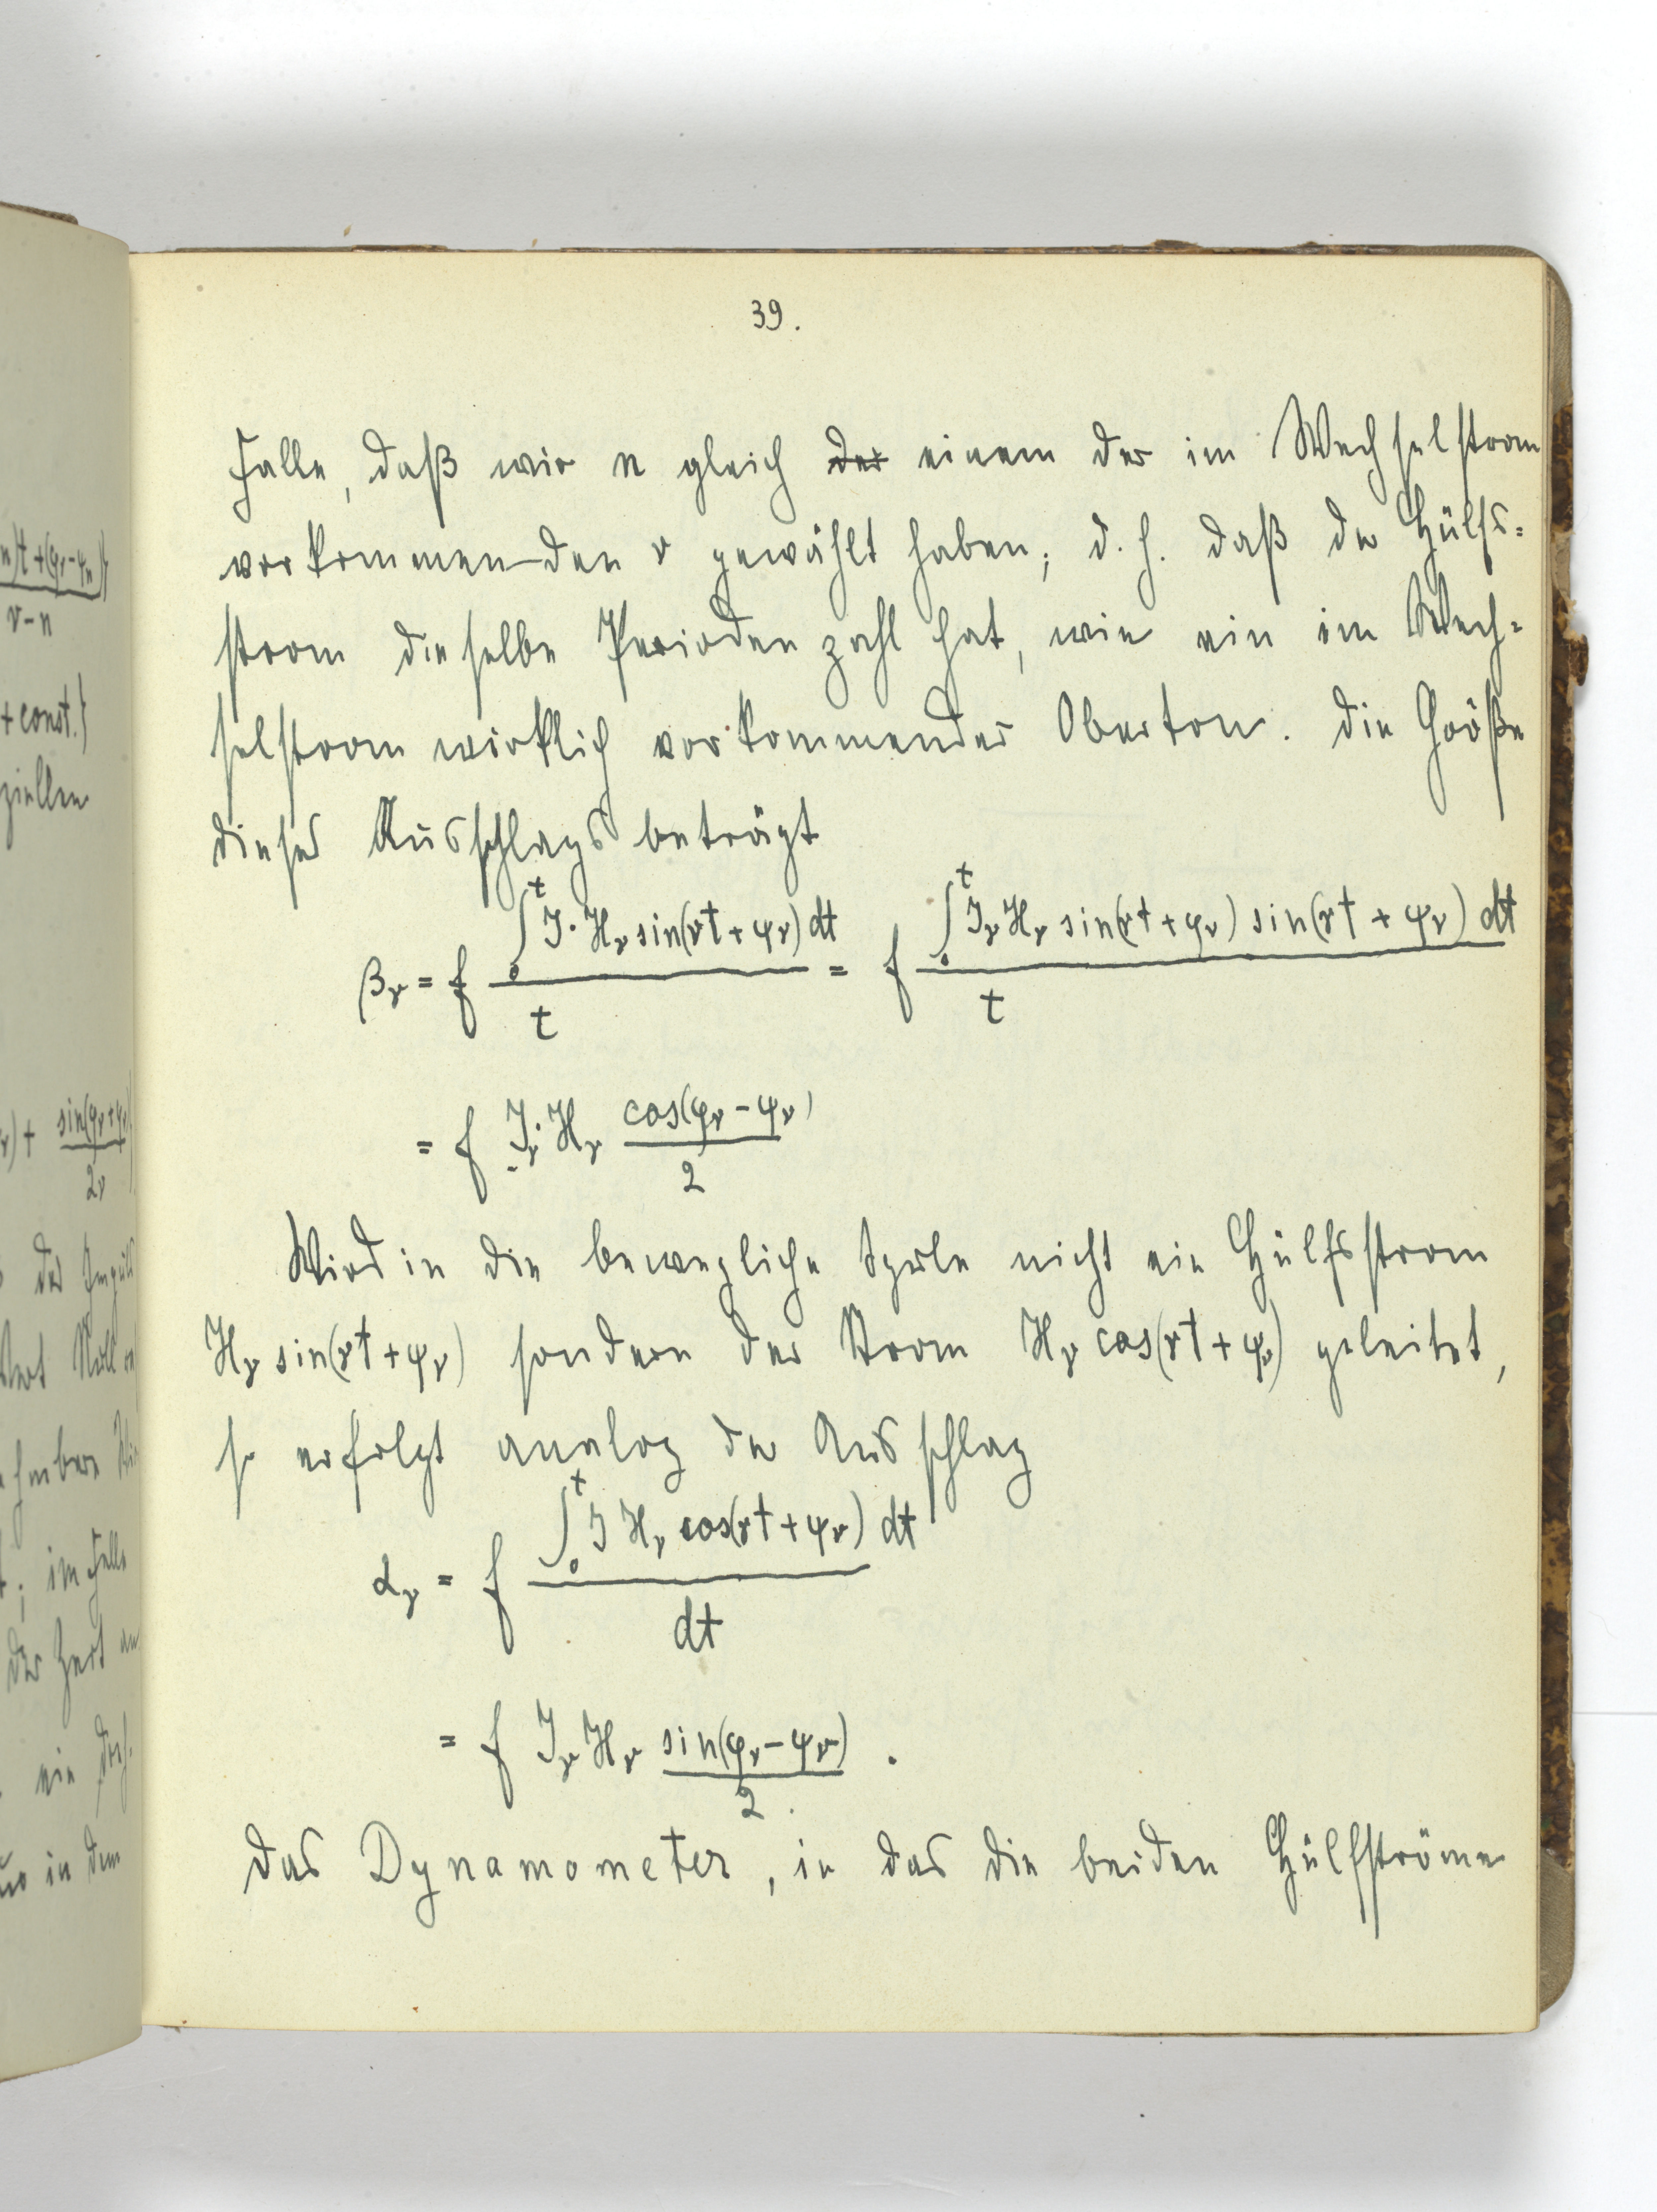 39.
Falle, daß wir n gleich der einem der im Wechselstrom
vorkommenden ν gewählt haben; d. h. daß der Hülfs=
strom dieselbe Periodenzahl hat, wie ein im Wech=
selstrom wirklich vorkommender Oberton. Die Größe
dieses Ausschlags beträgt
β_ν = f ∫₀ᵗ J·H_ν sin(νt + ψ_ν) dt / t = f ∫₀ᵗ J_ν H_ν sin(νt + φ_ν) sin(νt + ψ_ν) dt / t
= f J_ν·H_ν cos(φ_ν − ψ_ν) / 2
Wird in die bewegliche Spule nicht ein Hülfsstrom
H_ν sin(νt + ψ_ν) sondern der Strom H_ν cos(νt + ψ_ν) geleitet,
so erfolgt analog der Ausschlag
α_ν = f ∫₀ᵗ J H_ν cos(νt + ψ_ν) dt / dt
= f J_ν H_ν sin(φ_ν − ψ_ν) / 2 .
Das Dynamometer, in das die beiden Hülfströme